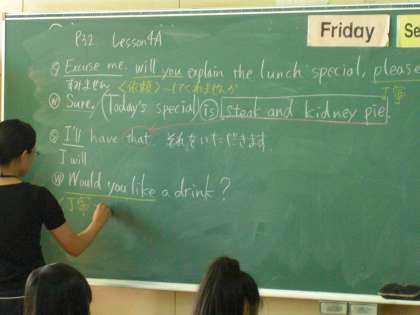 Friday
Se
P32 Lesson4A
Ⓖ Excuse me. will you explain the lunch special, please
すみません 〈依頼〉 ～してくれませんか
Ⓦ Sure. Today's special is steak and kidney pie.
丁寧
Ⓖ I'll have that. それをいただきます
I will
Ⓦ Would you like a drink?
丁寧